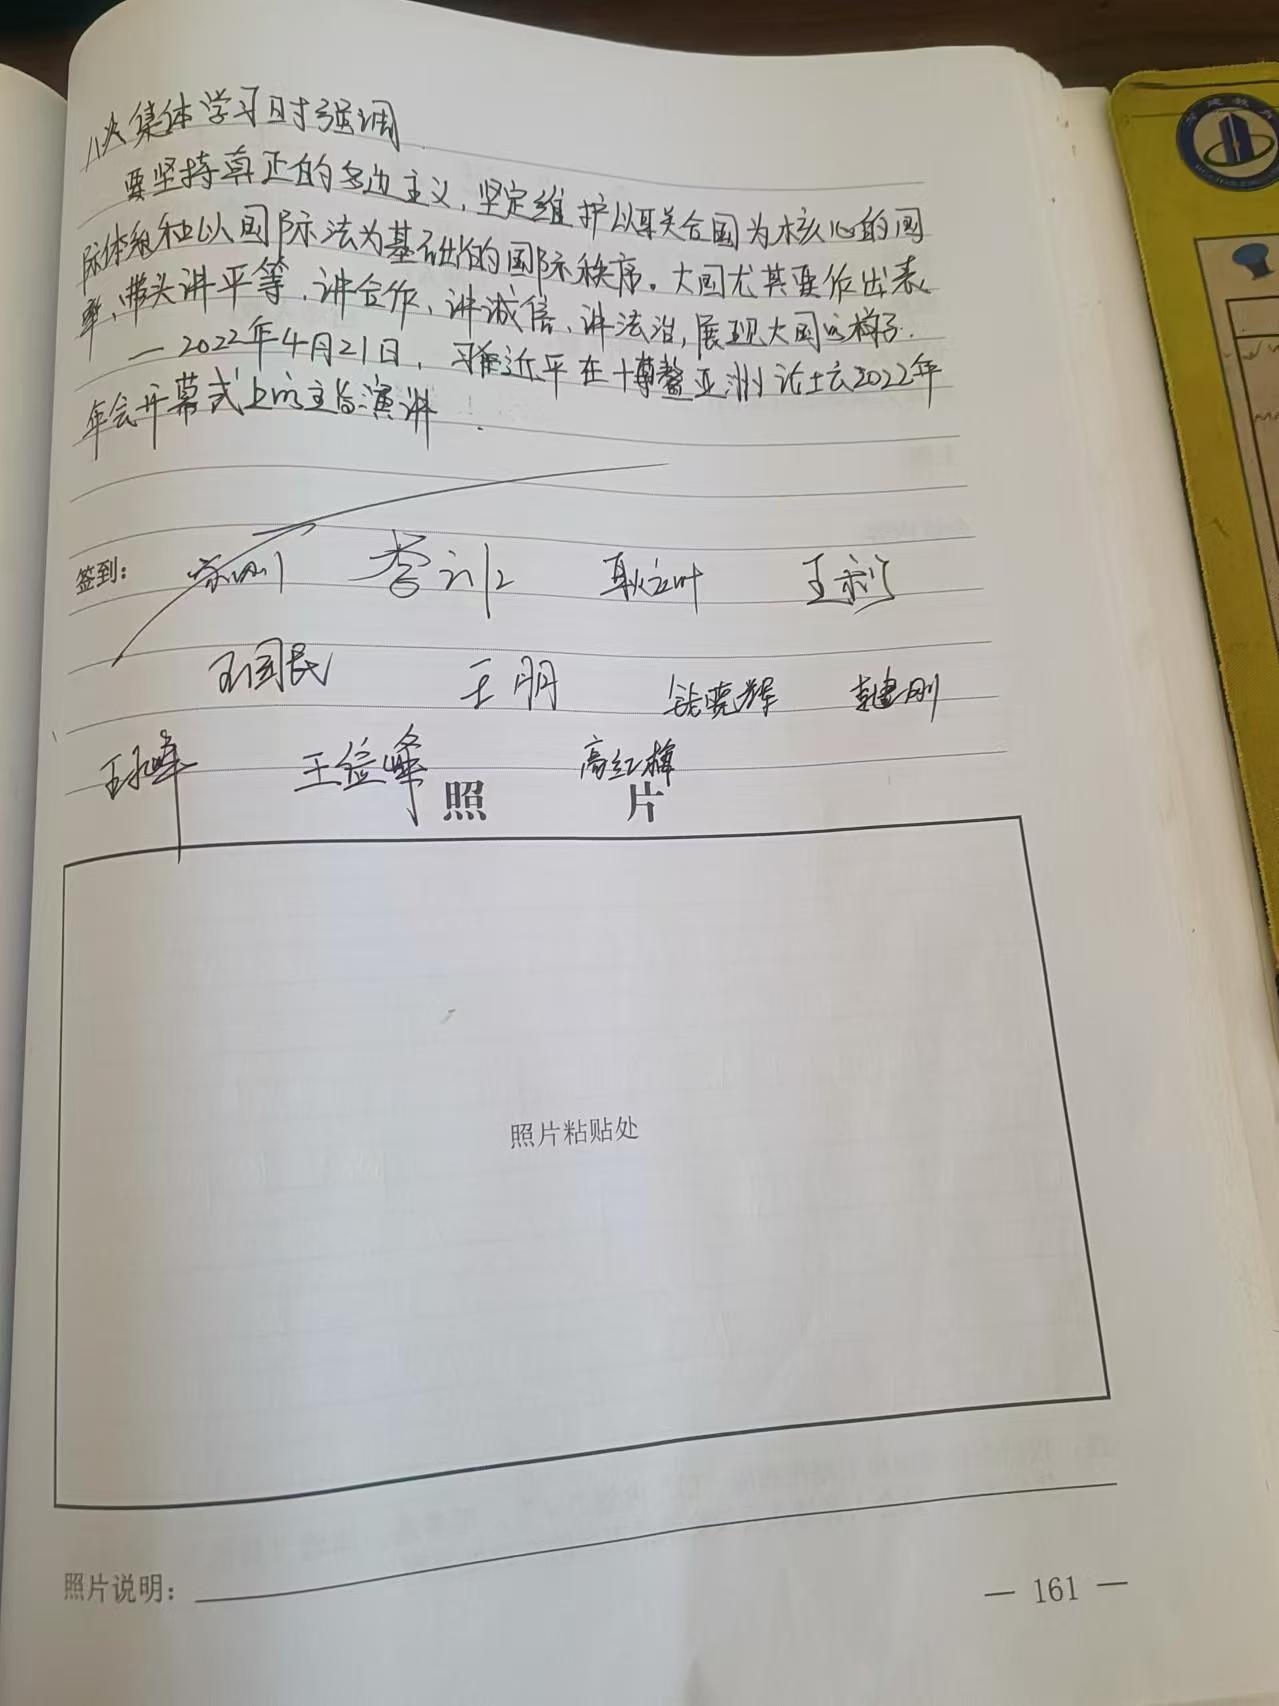 八次集体学习时强调
要坚持真正的多边主义，坚定维护以联合国为核心的国
际体系和以国际法为基础的国际秩序。大国尤其要作出表
率，带头讲平等、讲合作、讲诚信、讲法治，展现大国的样子.
— 2022年4月21日，习近平在博鳌亚洲论坛2022年
年会开幕式上的主旨演讲
签到：
李训 王利
王国民 王朋 张晓辉
王永峰 王益峰 高红梅
照 片
照片粘贴处
照片说明：
— 161 —